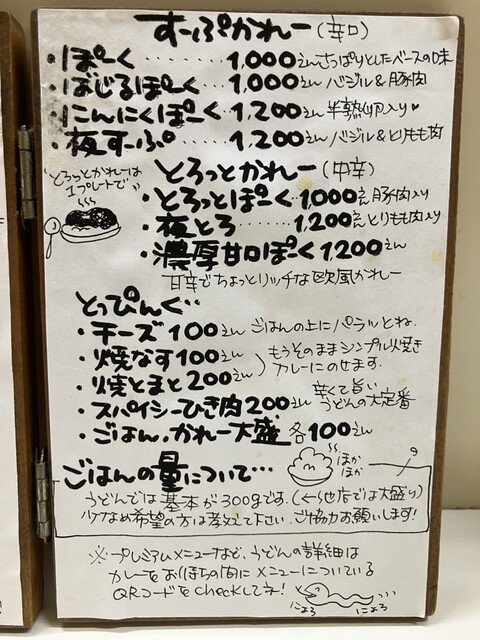 すーぷかれー(辛口)
・ぽーく………1,000えん さっぱりとしたベースの味
・ばじるぽーく……1,000えん バジル&豚肉
・にんにくぽーく…1,200えん 半熟卵入り♥
・夜すーぷ……1,200えん バジル&とりもも肉
とろっとかれー(中辛)
とろっとかれーは
1プレートで
・とろっとぽーく…1,000えん 豚肉入り
・夜とろ……1,200えん とりもも肉入り
・濃厚甘口ぽーく 1,200えん
甘辛でちょっとリッチな欧風かれー
とっぴんぐ‥
・チーズ 100えん ごはんの上にパラッとね.
・焼なす 100えん
・焼とまと 200えん
もうそのままシンプル焼き
カレーにのせます.
・スパイシーひき肉 200えん
辛くて旨い
うどんの大定番
・ごはん,かれー大盛 各100えん
ほか
ほか
ごはんの量について…
うどんでは基本が300gです.(←他店では大盛り)
少なめ希望の方は教えて下さい.ご協力お願いします!
※プレミアムメニューなど、うどんの詳細は
カレーをお待ちの間にメニューについている
QRコードをcheckしてネ!
にょろ
にょろ